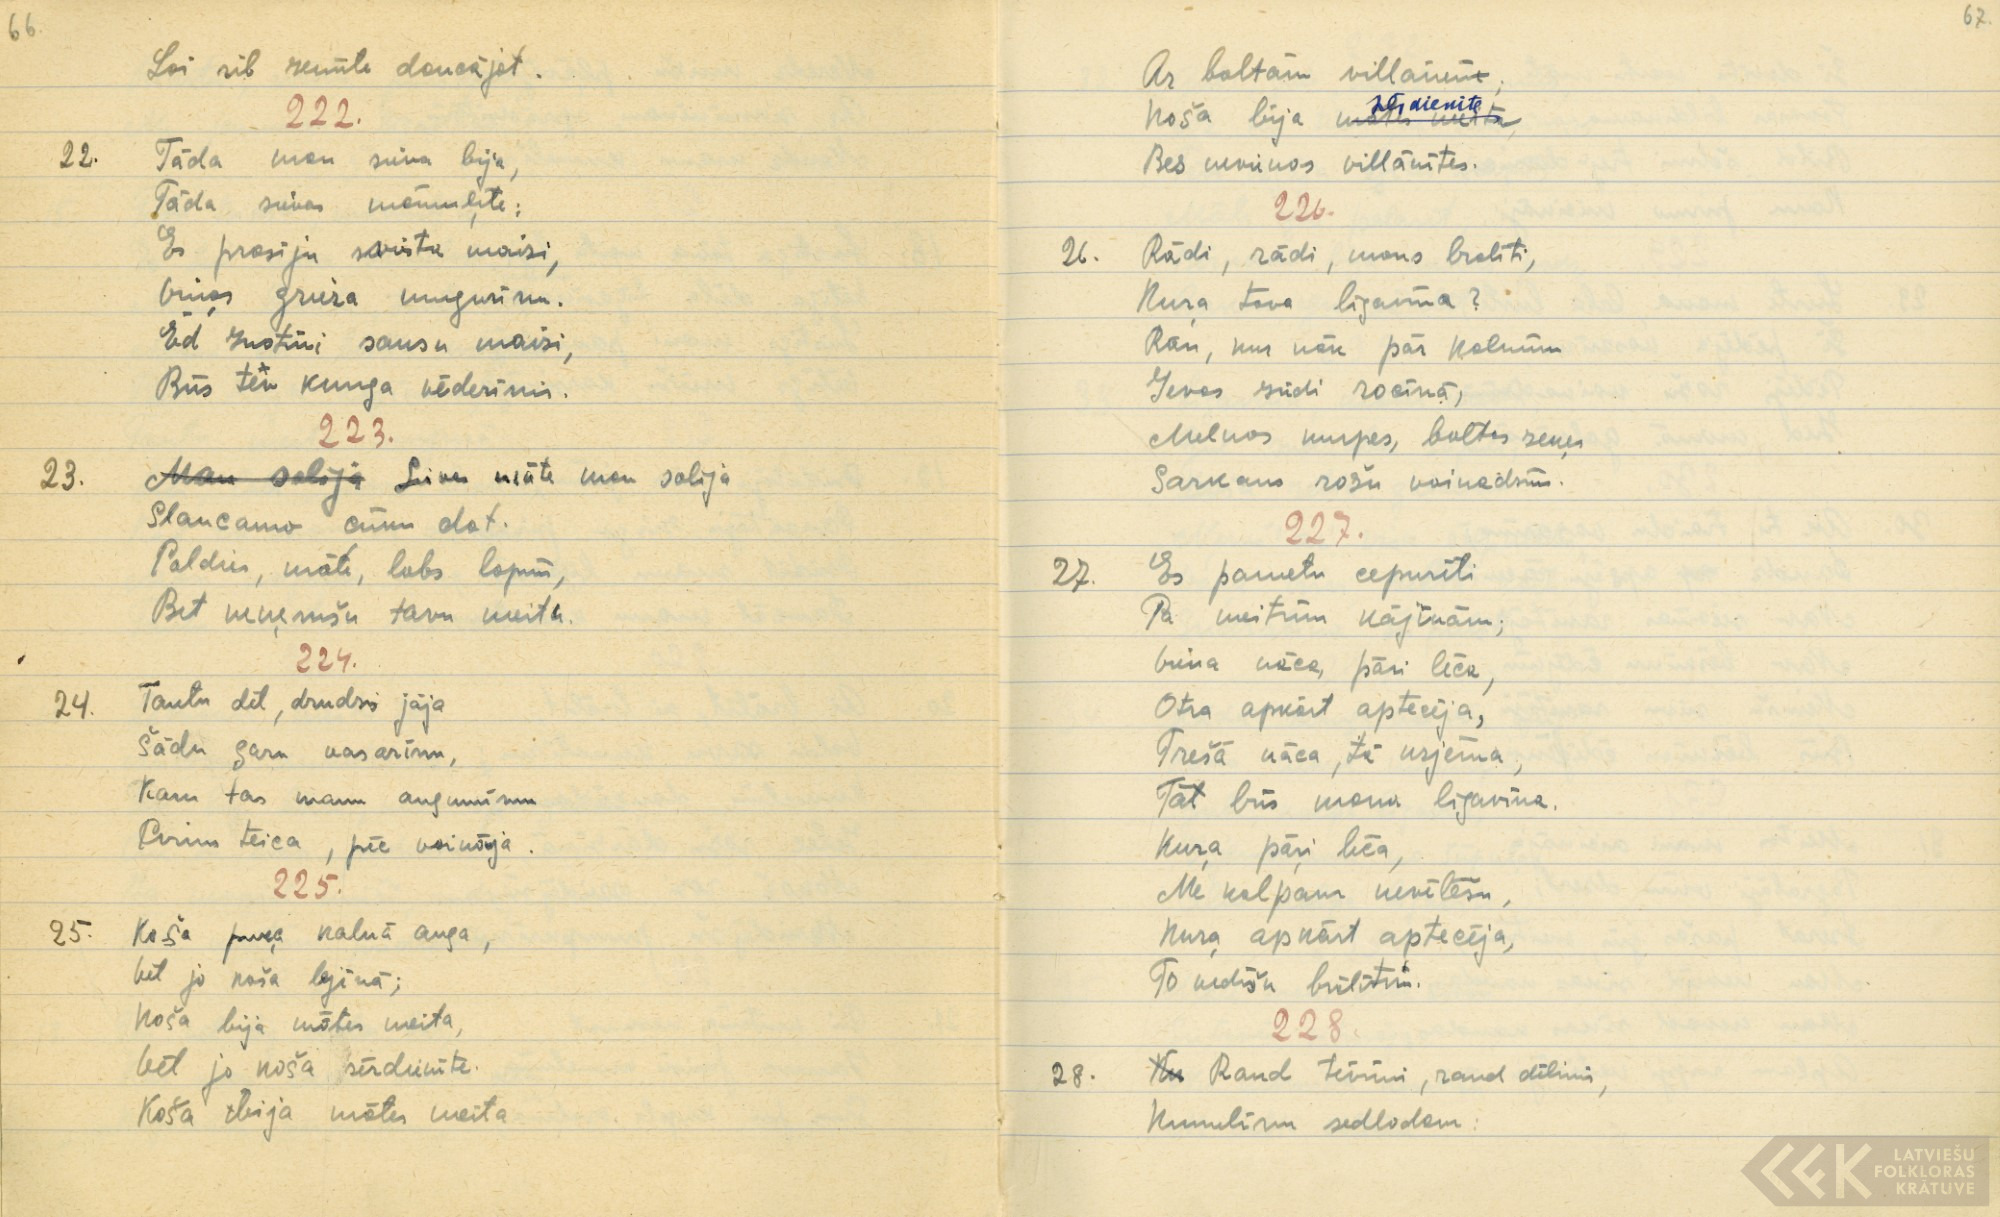 66.
Lai rīb zemīte dancājot.
222.
22. Tāda man sieva bija,
Tāda sievas māmuļīte:
Es prasīju sviesta maizi,
Viņas grieza mugurinu.
Ēd zustiņi sausu maizi,
Būs tev kunga vēderinis.
223.
23. Man solīja Sievas māte man solīja
Slaucamo cūku dot.
Paldies, māte, labs lopiņ,
Bet neņemšu tavu meitu.
224.
24. Tautu dēl, drudzis jāja
Šādu garu vasariņu,
Kam tas manu augumiņu
Pirm teica, pēc vainoja.
225.
25. Koša puķa kalnā auga,
Vēl jo koša lejinā;
Koša bija mātes meita,
Vēl jo koša sērdienīte.
Koša bija mātes meita
67.
Ar baltām villainēm,
Koša bija mātes meita sērdienīte,
Bes nevienas villānītes.
226.
26. Rādi, rādi, mans brālīti,
Kuŗa tava līgaviņa?
Rau, kur nāk pār kalniņu
Ievas ziedi rociņā,
Melnas kurpes, baltas zeķes
Sarkans rožu vainadziņ.
227.
27. Es pametu cepurīti
Pa meitiņu kājiņām;
Viena nāca, pāri lēca,
Otra apkārt aptecēja,
Trešā nāca, tā uzjēma,
Tāt būs mana līgaviņa.
Kuŗa pāri lēca,
Ne kalpam nevēlēšu,
Kuŗa apkārt aptecēja,
To vedīšu brālītim.
228.
28. Raud tēviņi, raud dēliņi,
Kumeliņu sedlodami:
LATVIEŠU
FOLKLORAS
KRĀTUVE